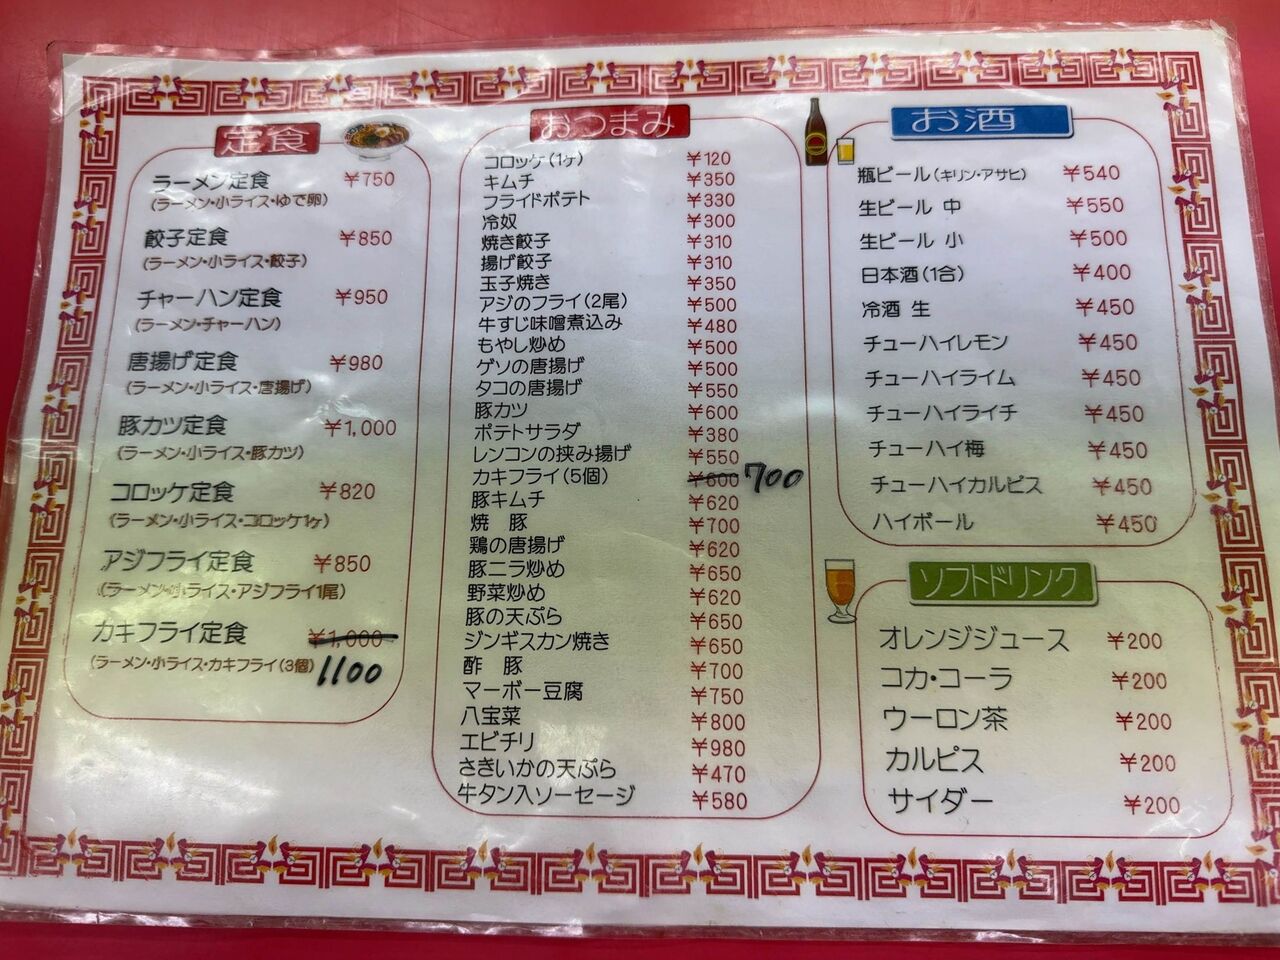 定食
ラーメン定食 ¥750
(ラーメン・小ライス・ゆで卵)
餃子定食 ¥850
(ラーメン・小ライス・餃子)
チャーハン定食 ¥950
(ラーメン・チャーハン)
唐揚げ定食 ¥980
(ラーメン・小ライス・唐揚げ)
豚カツ定食 ¥1,000
(ラーメン・小ライス・豚カツ)
コロッケ定食 ¥820
(ラーメン・小ライス・コロッケ1ヶ)
アジフライ定食 ¥850
(ラーメン・小ライス・アジフライ1尾)
カキフライ定食 ¥1,000
(ラーメン・小ライス・カキフライ(3個) 1100
おつまみ
コロッケ(1ヶ) ¥120
キムチ ¥350
フライドポテト ¥330
冷奴 ¥300
焼き餃子 ¥310
揚げ餃子 ¥310
玉子焼き ¥350
アジのフライ(2尾) ¥500
牛すじ味噌煮込み ¥480
もやし炒め ¥500
ゲソの唐揚げ ¥500
タコの唐揚げ ¥550
豚カツ ¥600
ポテトサラダ ¥380
レンコンの挟み揚げ ¥550
カキフライ(5個) ¥600 700
豚キムチ ¥620
焼 豚 ¥700
鶏の唐揚げ ¥620
豚ニラ炒め ¥650
野菜炒め ¥620
豚の天ぷら ¥650
ジンギスカン焼き ¥650
酢 豚 ¥700
マーボー豆腐 ¥750
八宝菜 ¥800
エビチリ ¥980
さきいかの天ぷら ¥470
牛タン入ソーセージ ¥580
お酒
瓶ビール(キリン・アサヒ) ¥540
生ビール 中 ¥550
生ビール 小 ¥500
日本酒(1合) ¥400
冷酒 生 ¥450
チューハイレモン ¥450
チューハイライム ¥450
チューハイライチ ¥450
チューハイ梅 ¥450
チューハイカルピス ¥450
ハイボール ¥450
ソフトドリンク
オレンジジュース ¥200
コカ・コーラ ¥200
ウーロン茶 ¥200
カルピス ¥200
サイダー ¥200